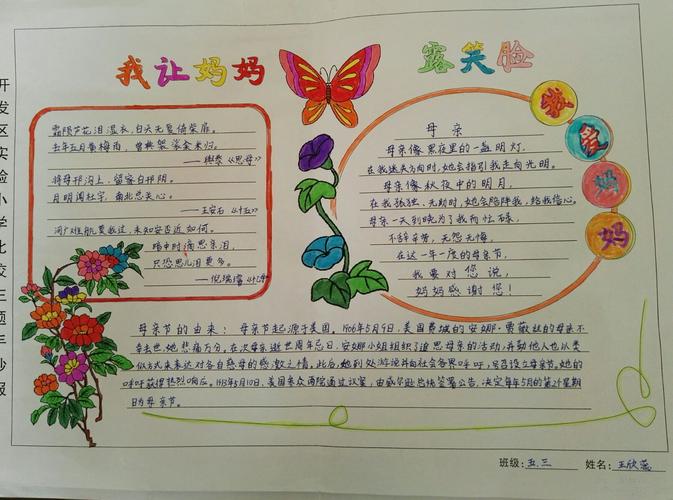 我让妈妈 露笑脸
开发区实验小学北校主题手抄报
霜陨芦花泪湿衣,白头无复倚柴扉。
去年五月黄梅雨,曾典袈裟籴米归。
——与恭《思母》
将母邗沟上,留家白邗阴。
月明闻杜宇,南北总关心。
——王安石《十五》
河广难航莫我过,未知安否近如何。
暗中时滴思亲泪,
只恐思儿泪更多。
——倪瑞璿
母亲
母亲像黑夜里的一盏明灯,
在我迷失方向时,她会指引我走向光明。
母亲像秋夜中的明月,
在我孤独、无助时,她会陪伴我,给我信心。
母亲一天到晚为了我而忙碌,
不辞辛劳,无怨无悔,
在这一年一度的母亲节,
我要对您说,
妈妈感谢您!
我
爱
妈
妈
母亲节的由来:母亲节起源于美国。1906年5月9日,美国费城的安娜·贾薇丝的母亲不
幸去世,她悲痛万分。在次年母亲逝世周年忌日,安娜小姐组织了追思母亲的活动,并鼓励他人也以类
似方式来表达对各自慈母的感激之情。此后,她到处游说并向社会各界呼吁,号召设立母亲节。她的
呼吁获得热烈响应。1913年5月10日,美国参众两院通过议案,由威尔逊总统签署公告,决定每年5月的第2个星期
日为母亲节。
班级:五.三 姓名:王欣蕊